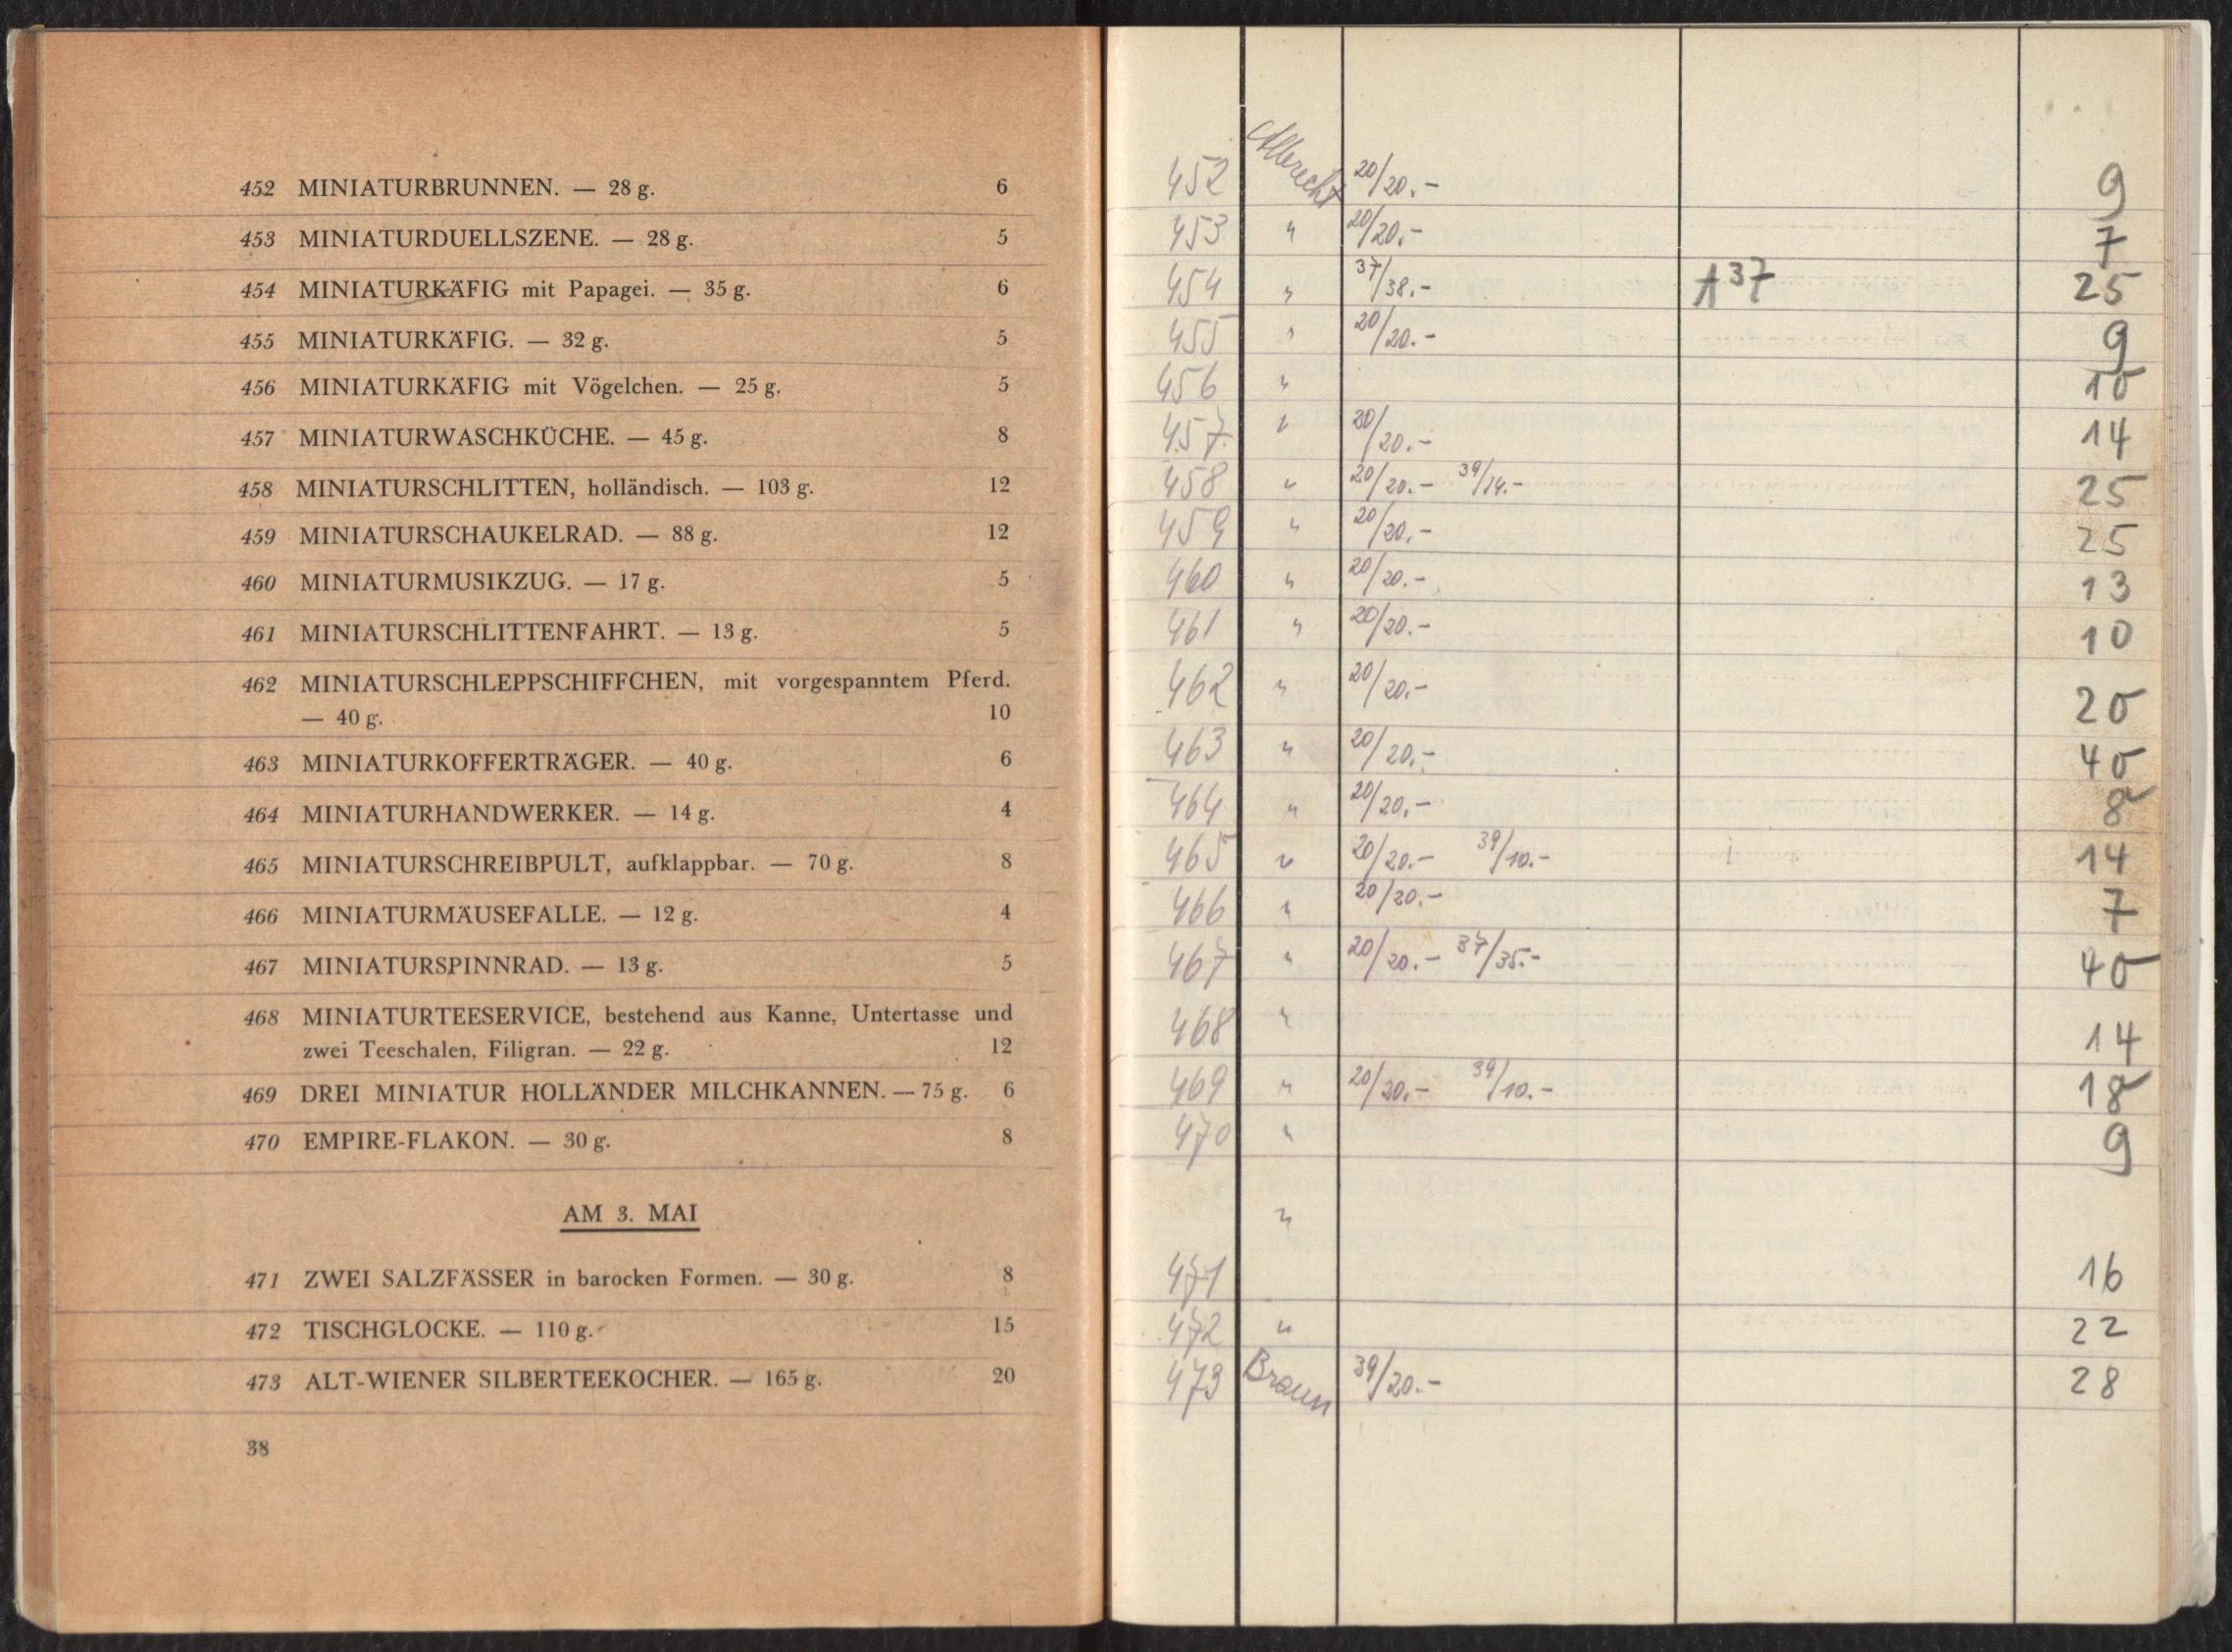 452 MINIATURBRUNNEN. — 28 g. 6
453 MINIATURDUELLSZENE. — 28 g. 5
454 MINIATURKÄFIG mit Papagei. — 35 g. 6
455 MINIATURKÄFIG. — 32 g. 5
456 MINIATURKÄFIG mit Vögelchen. — 25 g. 5
457 MINIATURWASCHKÜCHE. — 45 g. 8
458 MINIATURSCHLITTEN, holländisch. — 103 g. 12
459 MINIATURSCHAUKELRAD. — 88 g. 12
460 MINIATURMUSIKZUG. — 17 g. 5
461 MINIATURSCHLITTENFAHRT. — 13 g. 5
462 MINIATURSCHLEPPSCHIFFCHEN, mit vorgespanntem Pferd.
— 40 g. 10
463 MINIATURKOFFERTRÄGER. — 40 g. 6
464 MINIATURHANDWERKER. — 14 g. 4
465 MINIATURSCHREIBPULT, aufklappbar. — 70 g. 8
466 MINIATURMÄUSEFALLE. — 12 g. 4
467 MINIATURSPINNRAD. — 13 g. 5
468 MINIATURTEESERVICE, bestehend aus Kanne, Untertasse und
zwei Teeschalen, Filigran. — 22 g. 12
469 DREI MINIATUR HOLLÄNDER MILCHKANNEN. — 75 g. 6
470 EMPIRE-FLAKON. — 30 g. 8
AM 3. MAI
471 ZWEI SALZFÄSSER in barocken Formen. — 30 g. 8
472 TISCHGLOCKE. — 110 g. 15
473 ALT-WIENER SILBERTEEKOCHER. — 165 g. 20
38
452 Albrecht 20/20.- 9
453 " 20/20.- 7
454 " 37/38.- 137 25
455 " 20/20.- 9
456 " 10
457 " 20/20.- 14
458 " 20/20.- 39/14.- 25
459 " 20/20.- 25
460 " 20/20.- 13
461 " 20/20.- 10
462 " 20/20.- 20
463 " 20/20.- 40
464 " 20/20.- 8
465 " 20/20.- 39/10.- 14
466 " 20/20.- 7
467 " 20/20.- 37/35.- 40
468 " 14
469 " 20/20.- 39/10.- 18
470 " 9
"
471 16
472 " 22
473 Braun 39/20.- 28